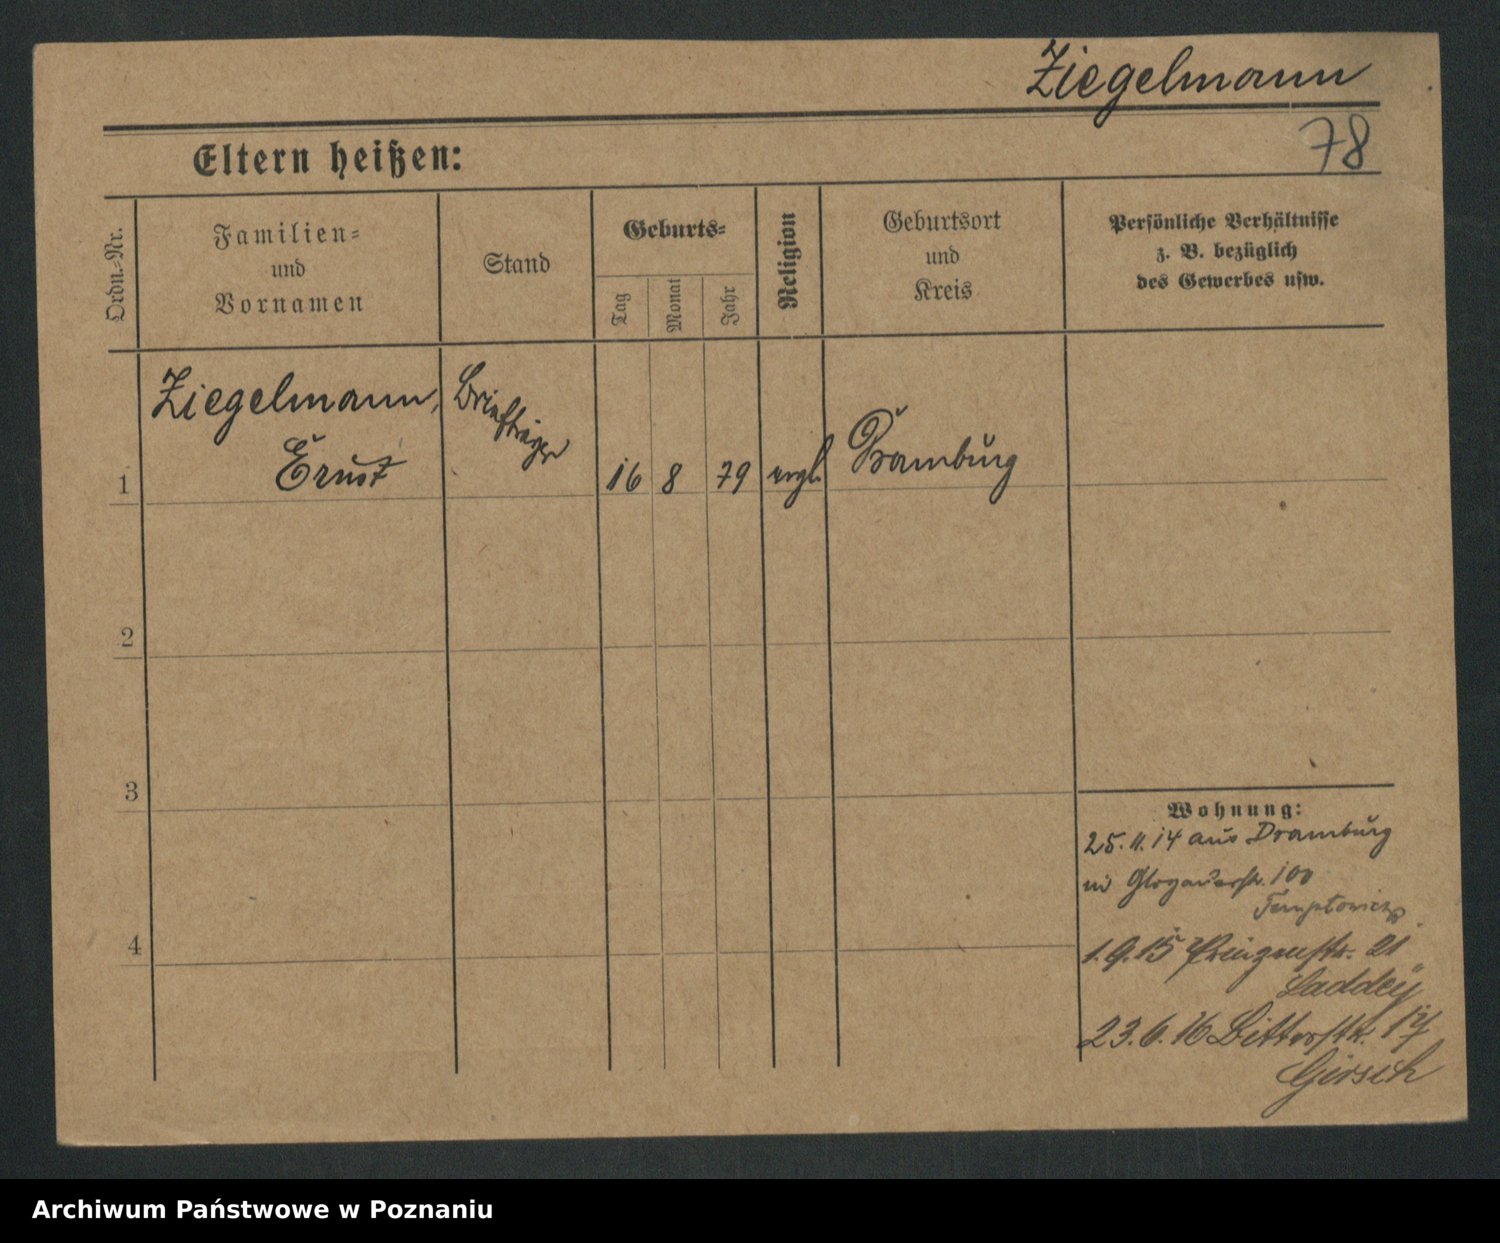 Ziegelmann
78
Eltern heißen:
Ordn.-Nr.
Familien-
und
Vornamen
Stand
Geburts-
Tag
Monat
Jahr
Religion
Geburtsort
und
Kreis
Persönliche Verhältnisse
z. B. bezüglich
des Gewerbes usw.
1
Ziegelmann,
Ernst
Briefträger
16 8 79 evgl. Dramburg
2
3
4
Wohnung:
25.11.14 aus Dramburg
Glogauerstr. 100
1.9.15 Prinzenstr. 21
23.6.16 17
Girsch
Archiwum Państwowe w Poznaniu